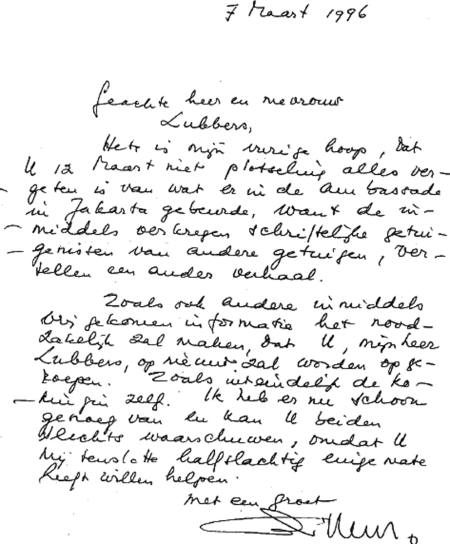 7 Maart 1996
Geachte heer en mevrouw
Lubbers,
Het is mijn vurige hoop, dat
U 12 Maart niet plotseling alles ver-
geten is van wat er in de ambassade
in Jakarta gebeurde, want de in-
middels verkregen schriftelijke getui-
genissen van andere getuigen, ver-
tellen een ander verhaal.
Zoals ook andere inmiddels
vrij gekomen informatie het nood-
zakelijk zal maken, dat U, mijnheer
Lubbers, opnieuw zal worden opge-
roepen. Zoals uiteindelijk de ko-
ningin zelf. Ik heb er nu schoon
genoeg van en kan U beiden
slechts waarschuwen, omdat U
mij tenslotte halfslachtig enige mate
heeft willen helpen.
met een groet